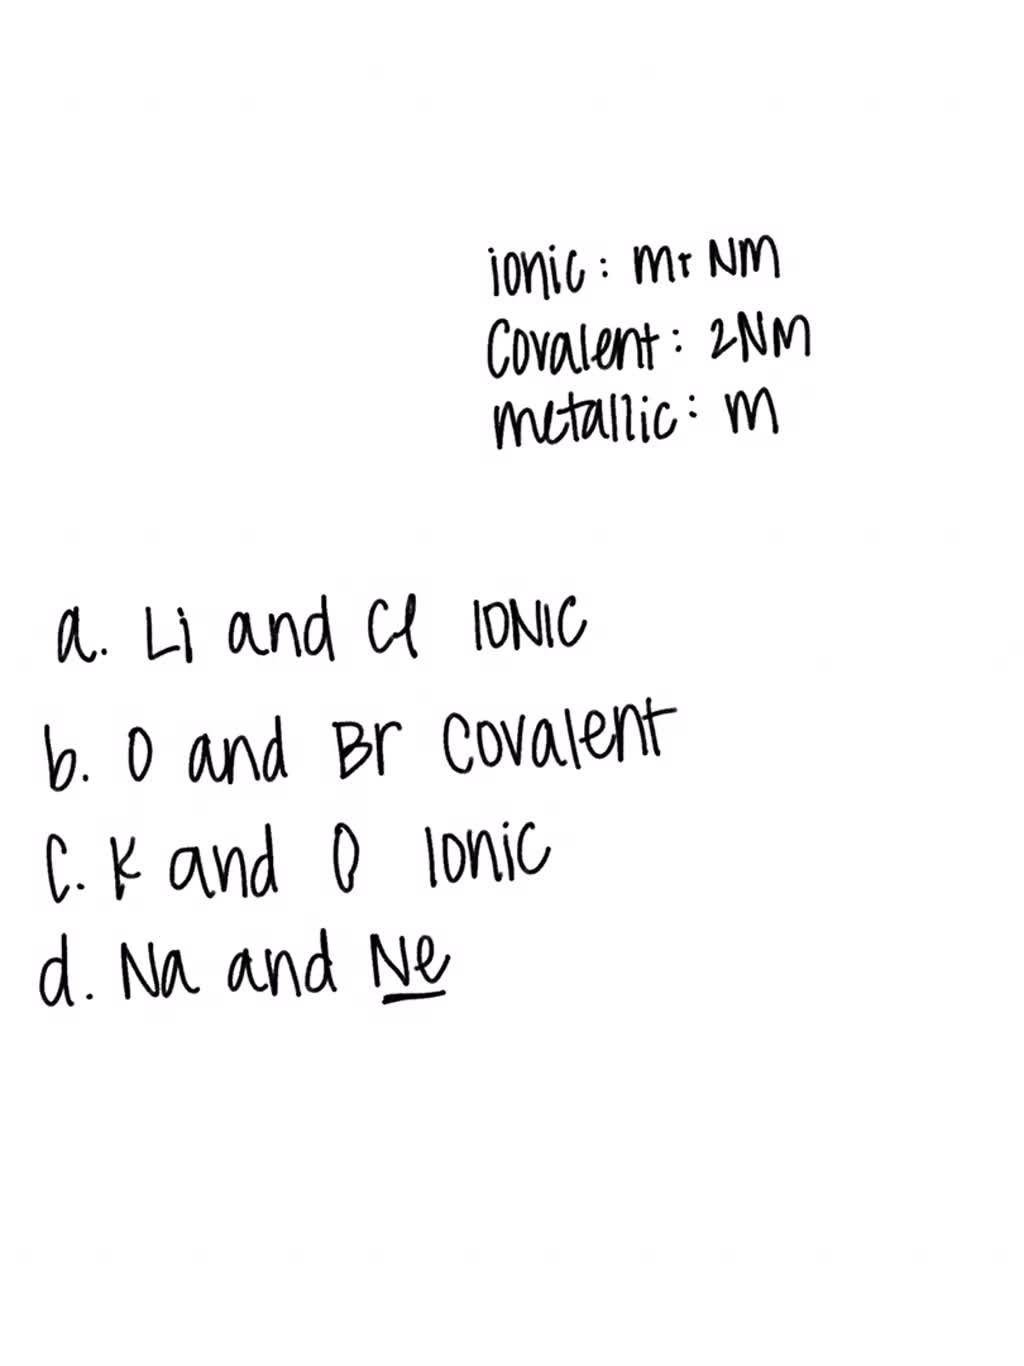 ionic: m+ NM
Covalent: 2NM
metallic: M
a. Li and Cl IONIC
b. O and Br Covalent
C. K and O Ionic
d. Na and Ne